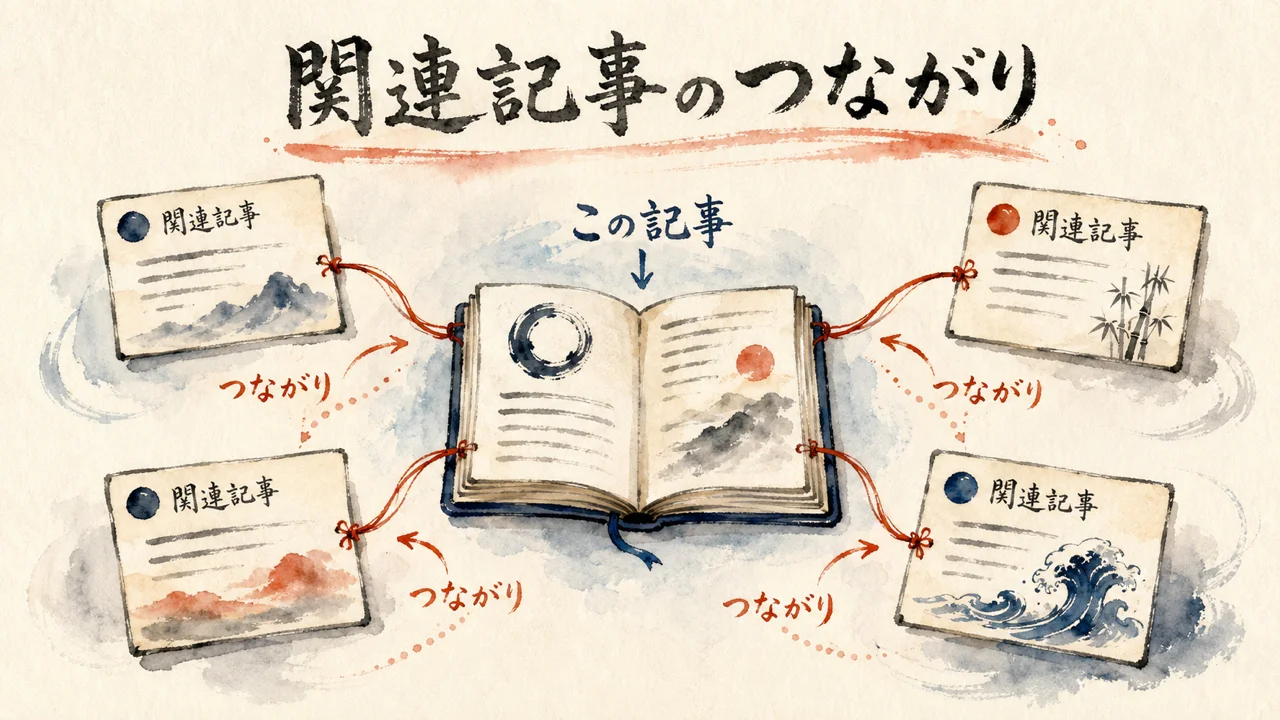 関連記事のつながり
この記事
↓
関連記事
関連記事
つながり
つながり
関連記事
関連記事
つながり
つながり